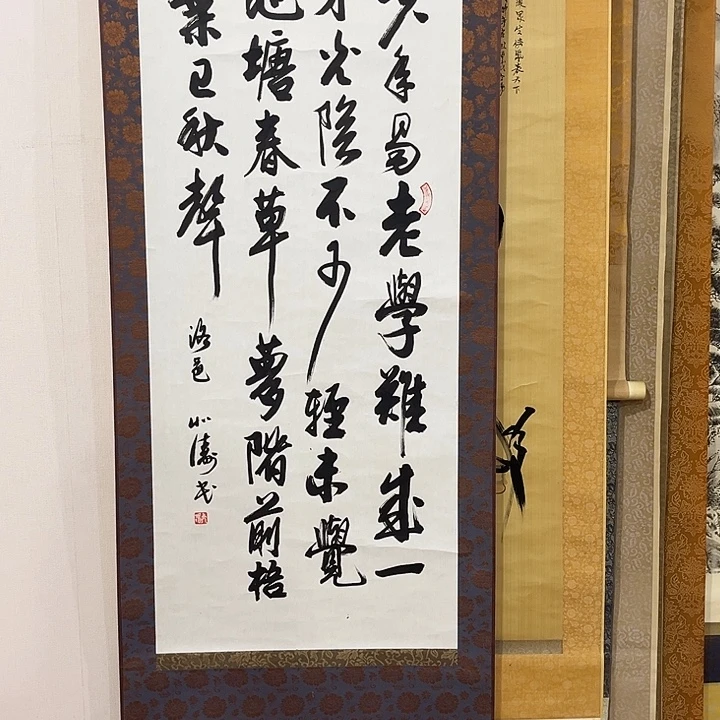 少年易老學難成一
寸光陰不可輕未覺
池塘春草夢階前梧
葉已秋聲
洛邑